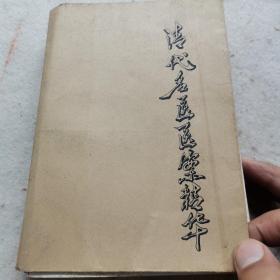 清代名医医案精华